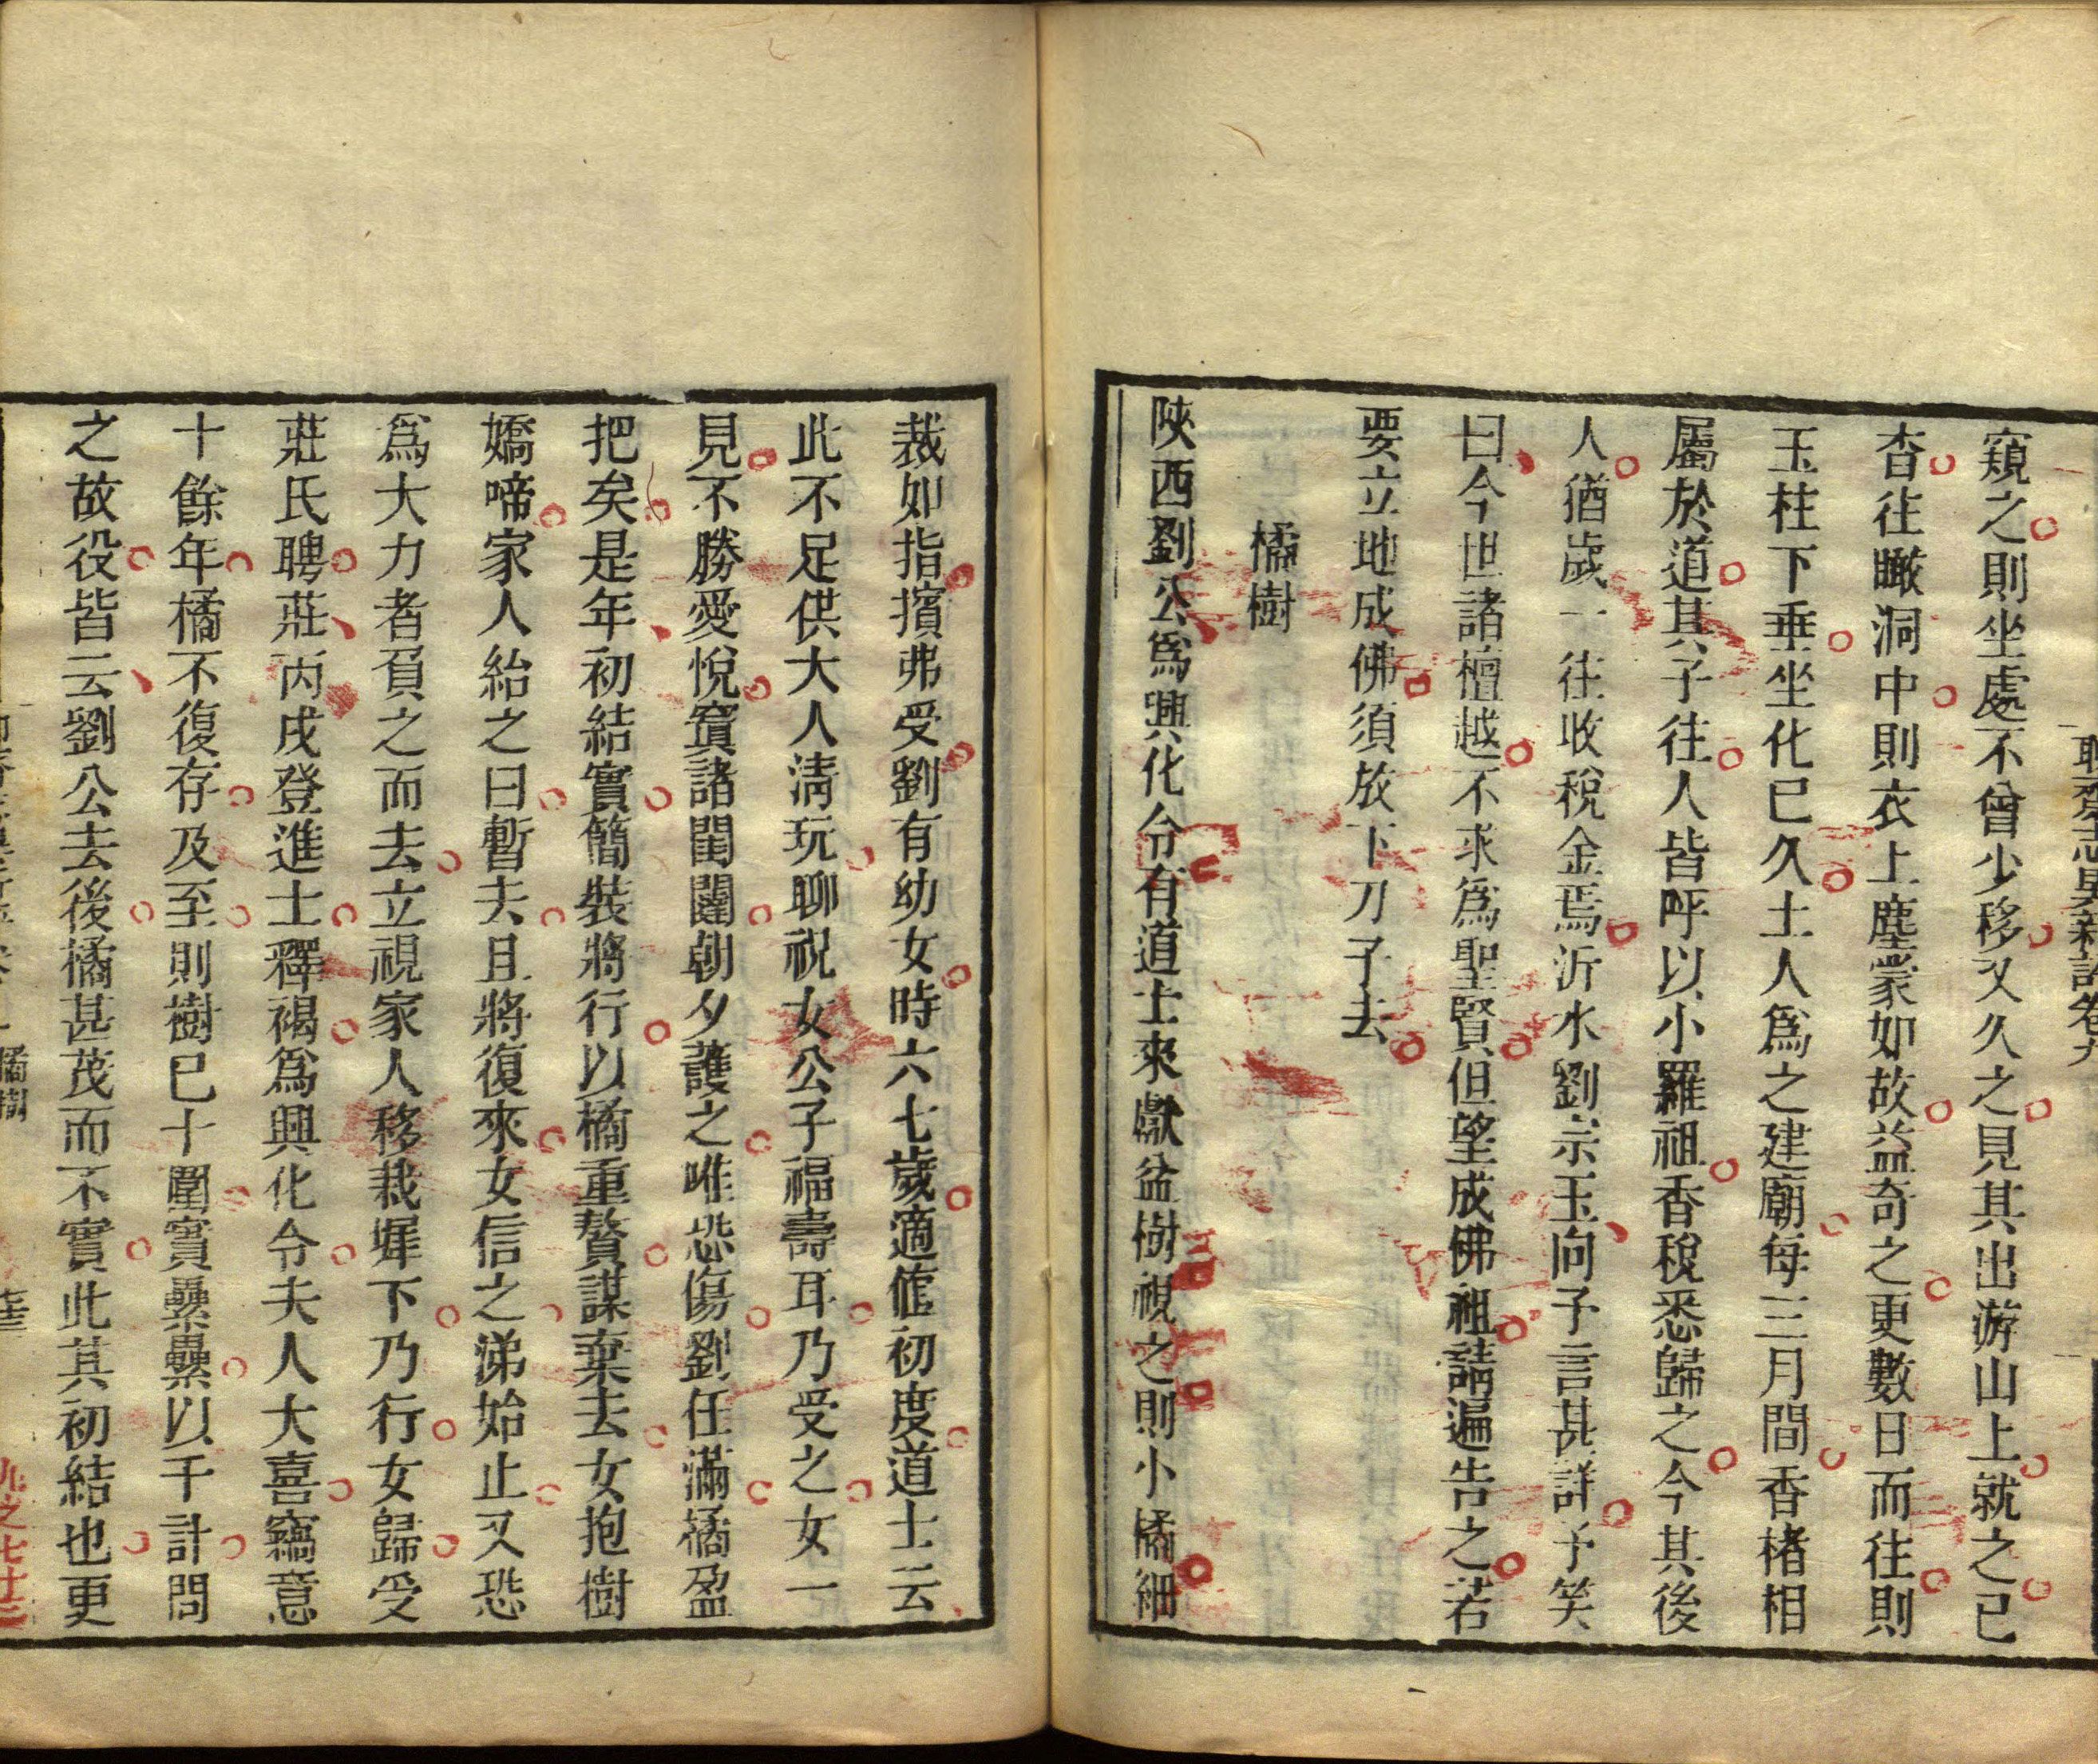 聊齋志異新評卷九
窺之則坐處不曾少移又久之見其出游山上就之已
杳往瞰洞中則衣上塵蒙如故益奇之更數日而往則
玉柱下垂坐化已久土人爲之建廟每三月間香楮相
屬於道其子往人皆呼以小羅祖香稅悉歸之今其後
人猶歲一往收稅金焉沂水劉宗玉向予言甚詳予笑
曰今世諸檀越不求爲聖賢但望成佛祖請遍告之若
要立地成佛須放下刀子去
橘樹
陝西劉公爲興化令有道士來獻盆樹視之則小橘細
裁如指擯弗受劉有幼女時六七歲適值初度道士云
此不足供大人清玩聊祝女公子福壽耳乃受之女一
見不勝愛悅寘諸閨闥朝夕護之唯恐傷劉任滿橘盈
把矣是年初結實簡裝將行以橘重贅謀棄去女抱樹
嬌啼家人紿之曰暫去且將復來女信之涕始止又恐
爲大力者負之而去立視家人移栽墀下乃行女歸受
莊氏聘莊丙戌登進士釋褐爲興化令夫人大喜竊意
十餘年橘不復存及至則樹已十圍實纍纍以千計問
之故役皆云劉公去後橘甚茂而不實此其初結也更
橘樹